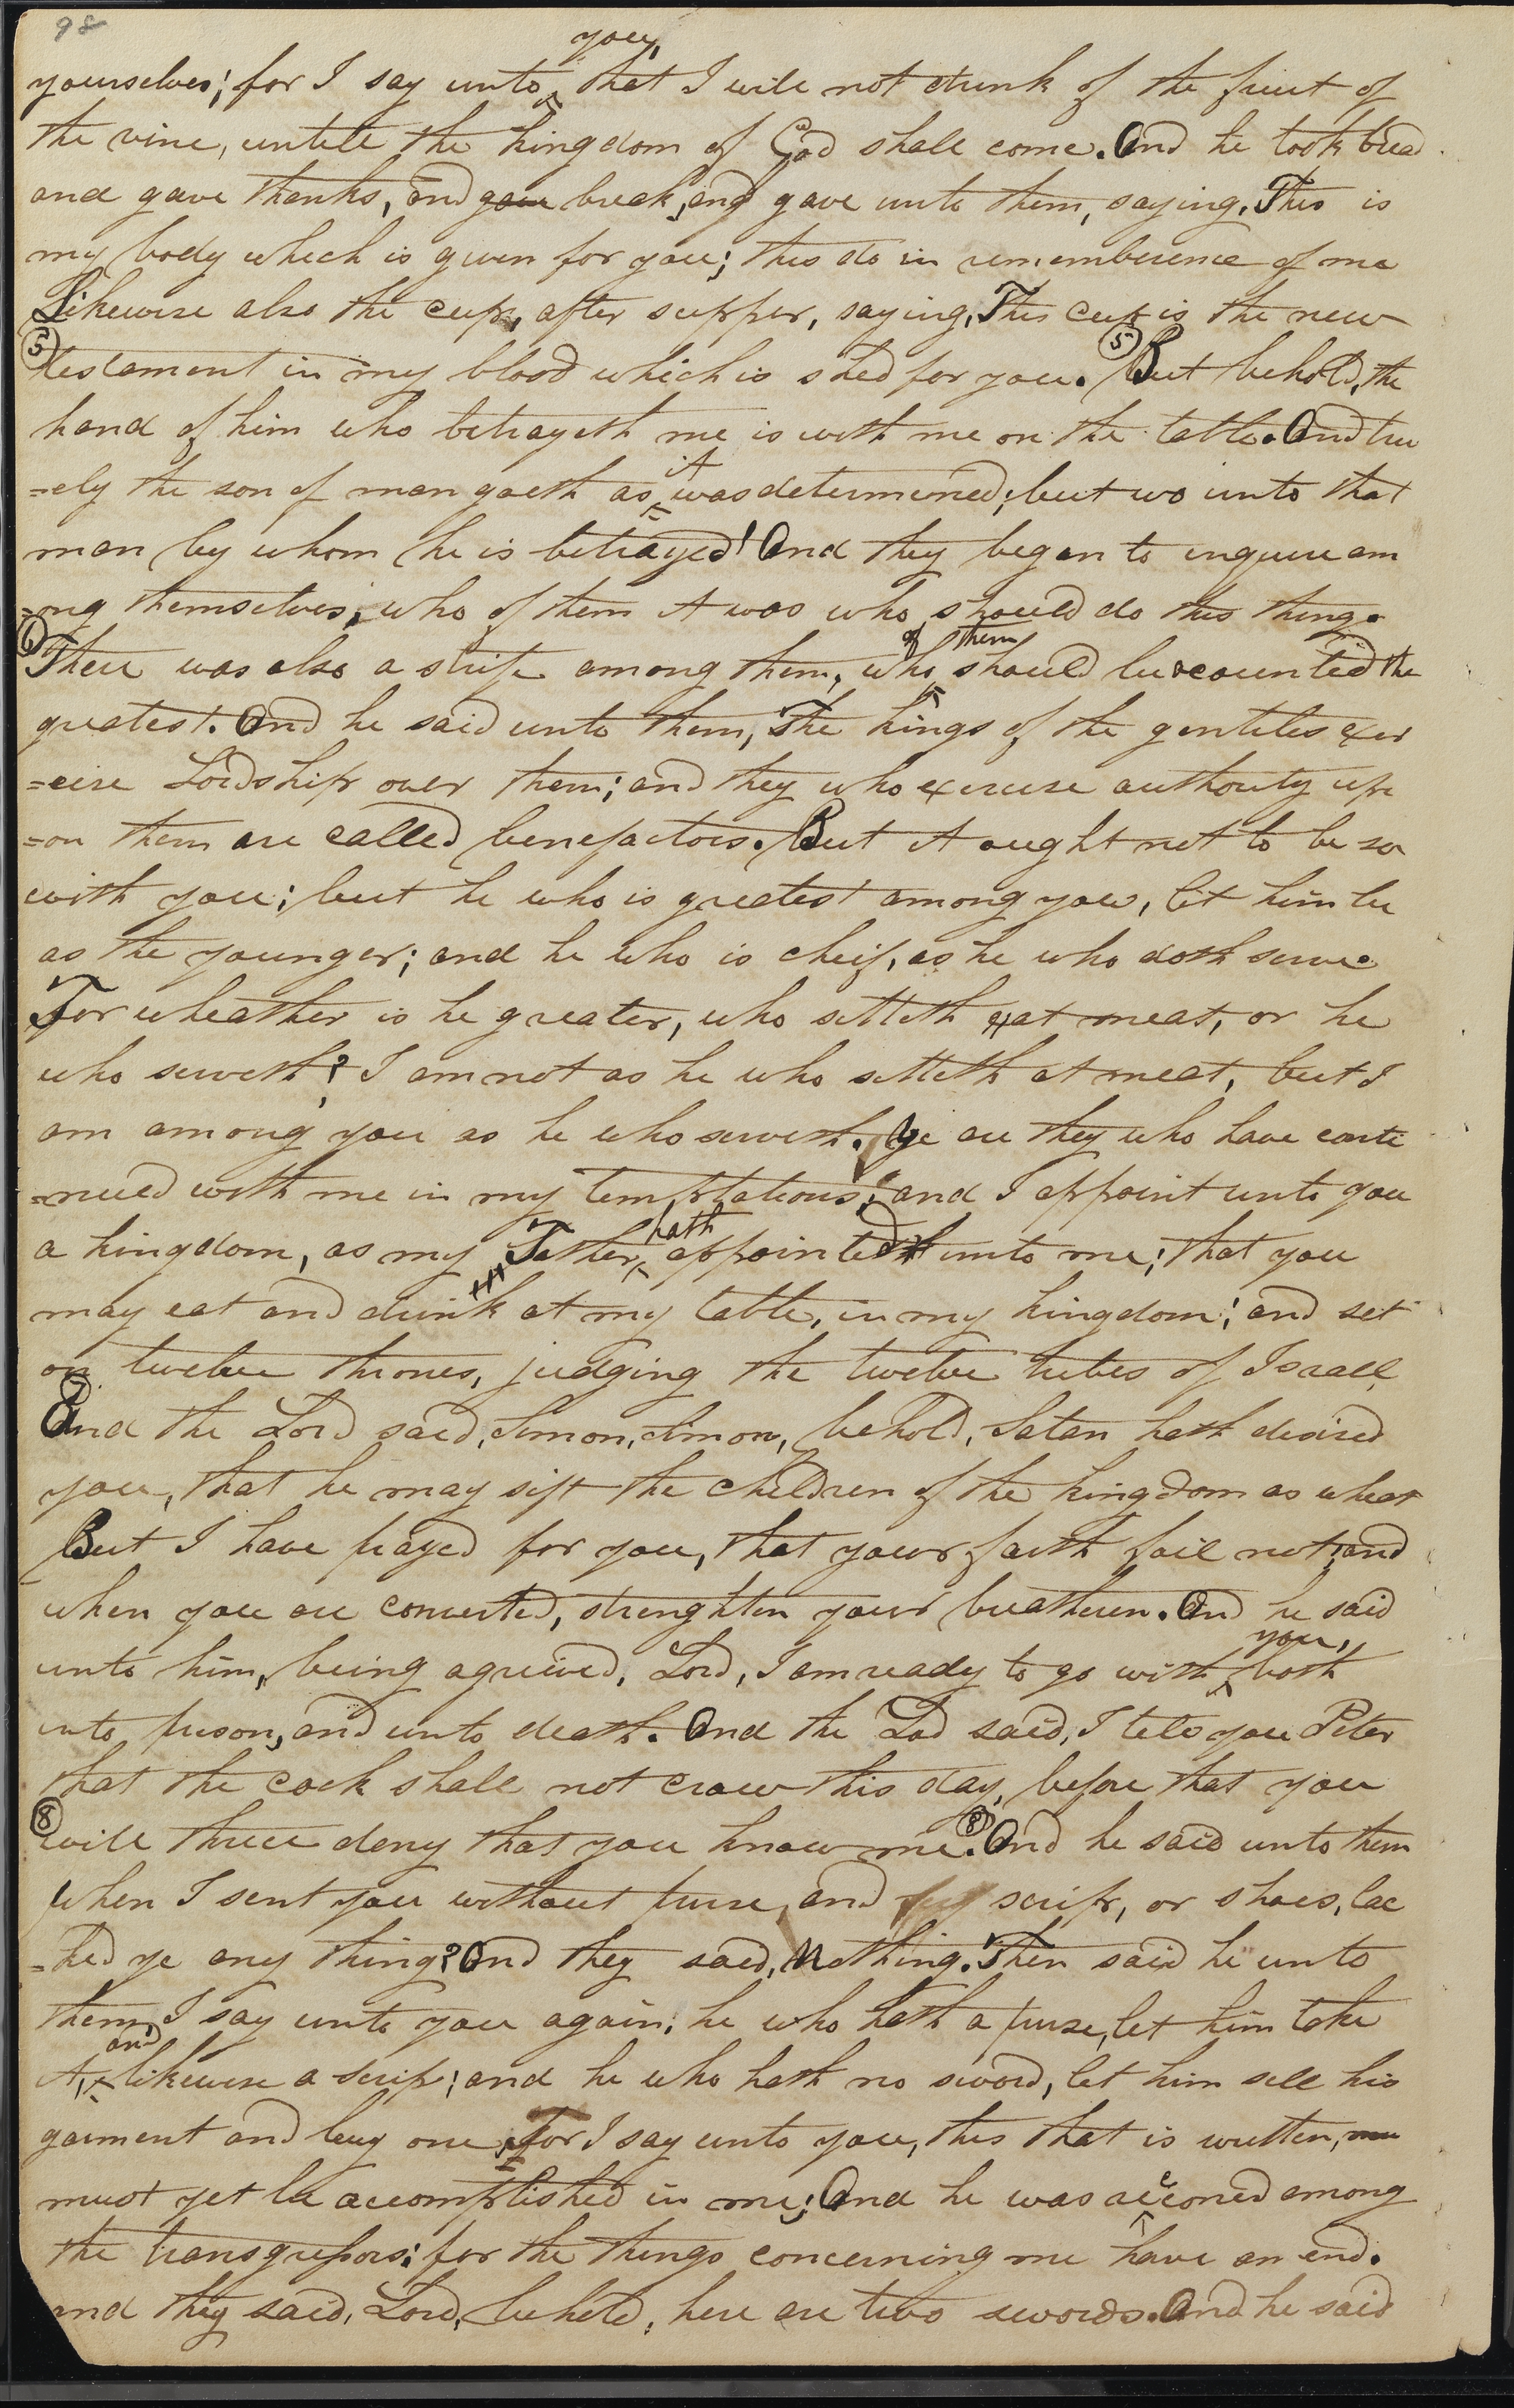 98
yourselves; for I say unto you, that I will not drink of the fruit of
the vine, untill the kingdom of God shall come. And he took bread
and gave thanks, and gave break, and gave unto them, saying, This is
my body which is given for you; this do in rememberence of me
Likewise also the cup, after supper, saying, This cup is the new
(5) testament in my blood which is shed for you. (5) But behold, the
hand of him who betrayeth me is with me on the table. And tru
=ely the son of man goeth as it was determined; but wo unto that
man by whom he is betrayed! And they began to inquire am
=ong themselves, who of them it was who should do this thing.
(6) There was also a strife among them, who of them should be accounted the
greatest. And he said unto them, The kings of the gentiles exer
=cise Lordship over them; and they who exercise authority up
=on them are called benefactors. But it ought not to be so
with you; but he who is greatest among you, let him be
as the younger; and he who is cheif, as he who doth serve.
For wheather is he greater, who sitteth at meat, or he
who serveth? I am not as he who sitteth at meat, but I
am among you as he who serveth. Ye are they who have conti
=nued with me in my temptations; and I appoint unto you
a kingdom, as my Father hath appointed unto me; that you
may eat and drink at my table, in my kingdom; and set
on twelve thrones, judging the twelve tribes of Israel,
7 And the Lord said, Simon, Simon, behold, Satan hath desired
you, that he may sift the children of the kingdom as wheat
But I have prayed for you, that your faith fail not; and
when you are converted, strenghten your breatheren. And he said
unto him, being agrieved, Lord, I am ready to go with you, both
into prison, and unto death. And the Lord said, I tell you Peter
that the cock shall not crow this day, before that you
(8) will thrice deny that you know me. (8) And he said unto them
when I sent you without purse, and scrip, or shoes, lac
=ked ye any thing? And they said, Nothing. Then said he unto
them, I say unto you again, he who hath a purse, let him take
it, and likewise a scrip; and he who hath no sword, let him sell his
garment and buy one, for I say unto you, this that is written, mu
must yet be accomplished in me; And he was reconed among
the transgressors: for the things concerning me have an end.
and they said, Lord, behold, here are two swords. And he said